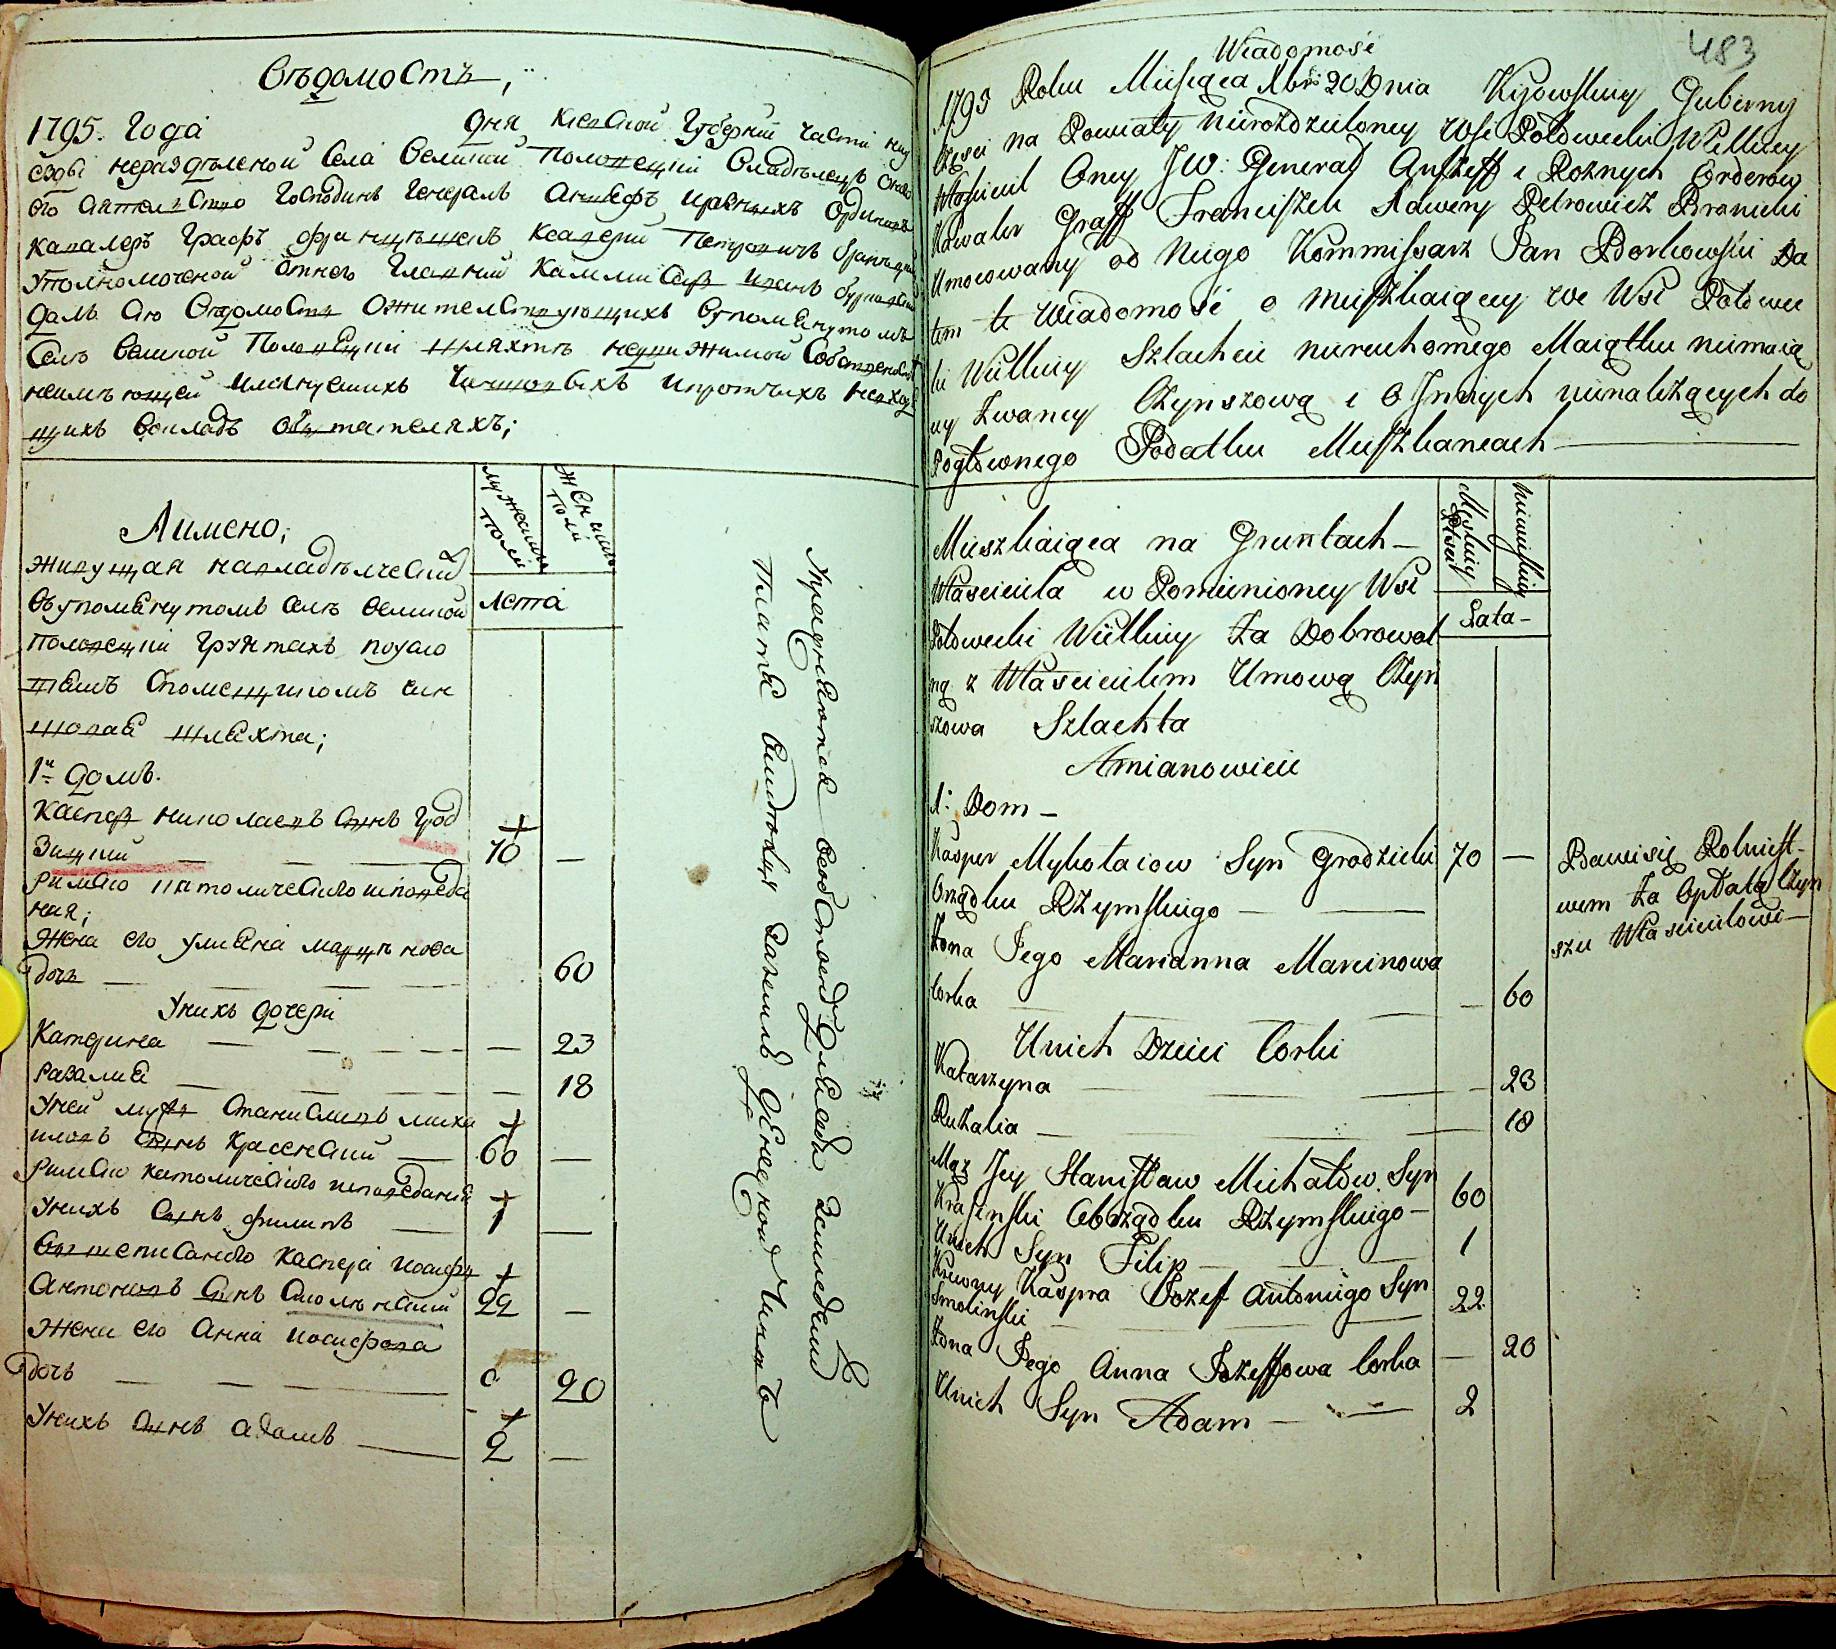 Ведомость,
1795. Года дня Киевской Губернии части на у
езды нераздѣленой села Великой Половецкой Владѣлецъ
Господинъ Генералъ Аншефъ и разныхъ Орденовъ
Кавалеръ Графъ Францѣшекъ Ксаверий Петровичъ Браницкий
уполномоченой отнего Главний Каммисаръ Иванъ
далъ сию Ведомость ожителствующихъ вупомянутомъ
селѣ Великой Половецкой шляхтѣ недвижимой собственност
неимѣющей имянуемихъ чиншовыхъ ипротчихъ невход
щихъ вокладъ обытателяхъ;
мужеска полу
женска полу
Лета
Аимено;
живущая навладѣлческих
вупомянутомъ селѣ Великой
Половецкой грунтахъ по
спомещикомъ чин
шовая шляхта;
1й домъ.
Касперъ Николаевъ синъ Грод
зицкий — 70 —
римско католическаго исповеда
ния;
жена его улияна марцинова
дочь — 60
Унихъ дочери
Катрина — — 23
Разалия — — 18
Уней мужъ Станиславъ миха
иловъ синъ Красенский — 60 —
римско католическаго исповедания
Унихъ синъ Филипъ — 1 —
Вишеписанаго Каспера иосифъ
Антоновъ синъ Смоленский 22 —
жена его Анна иосифова
дочь — 0 20
Унихъ синъ адамъ — 2 —
483
Wiadomość
1795 Roku Miesiąca Xbrs 20 Dnia Kijowskiey Guberny
Części na Powiaty nierozdzieloney Wsi Połowecki Wielkiey
Właściciel Oney JW: Generał Anszeff i Rożnych Orderow
Kawaler Graff Franciszek Xawery Petrowicz Branicki
Umocowany od Niego Kommissarz Jan Borkowski Da
łem tę Wiadomość o Mieszkaiącey we Wsi Połowec
ki Wielkiey Szlachcie nieruchomego Maiątku niemaią
cy Zwaney Czynszową i o Jnnych nienależących do
Pogłownego Podatku Mieszkancach —
Męskiey Płci
niewieskiey
Lata —
Mieszkaiąca na Gruntach —
Właściciela w Pomienioney Wsi
Połowecki Wielkiey za Dobrowol
ną z Właścicielem Umową Czyn
szowa Szlachta
Amianowicie
1: Dom —
Kasper Mykołaiow Syn Grodzicki 70 —
Orządku Rżymskiego —
Żona Jego Marianna Marcinowa
Corka — — 60
Unich Dzieci Corki
Katarzyna — — 23
Ruzalia — — 18
Mąż Jey Stanisław Michałow Syn
Krasinski Obrządku Rżymskiego — 60
Unich Syn Filip — 1
Krewny Kaspra Jozef Antoniego Syn
Smolinski — 22
Żona Jego Anna Jozeffowa Corka — 20
Unich Syn Adam — 2
Bawi się Rolnict-
wem za Opłatą Czyn
szu Właścicielowi —